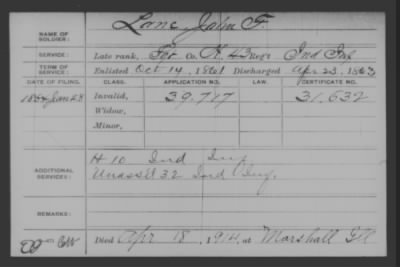 NAME OF SOLDIER: Lane, John F.
SERVICE: Late rank, Co. K, 43 Reg't Ind Inf
TERM OF SERVICE: Enlisted Oct 14, 1861 Discharged Apr 23, 1863
DATE OF FILING. CLASS. APPLICATION NO. LAW. CERTIFICATE NO.
Jan 28 Invalid, 39,717 31,632
Widow,
Minor,
ADDITIONAL SERVICES: H 10 Ind Inf,
Unass'd 32 Ind Inf.
REMARKS:
Died Apr 18, 1914, at Marshall Ill